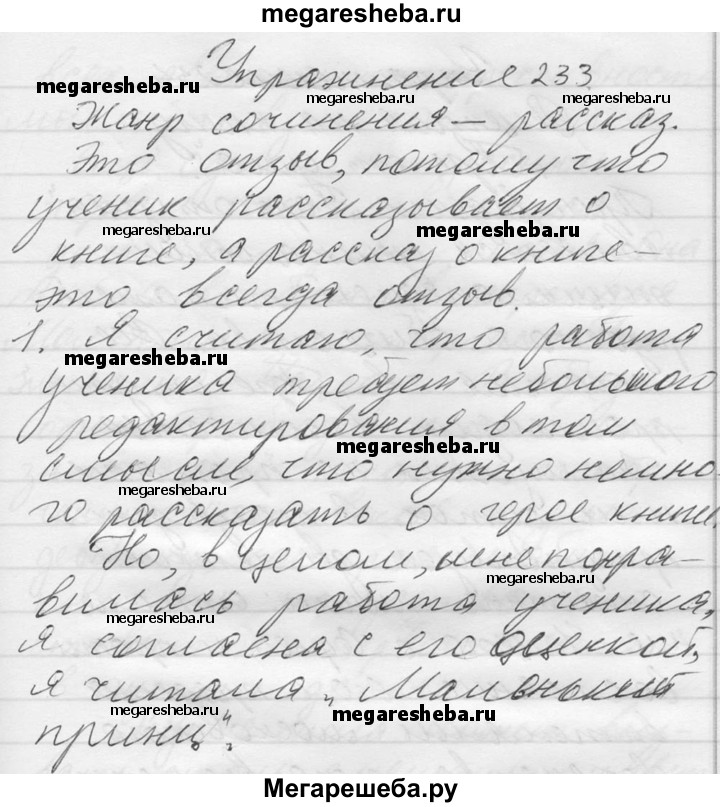 megaresheba.ru
Упражнение 233.
megaresheba.ru
megaresheba.ru
megaresheba.ru
Жанр сочинения – рассказ.
Это отзыв, потому что
megaresheba.ru
ученик рассказывает о
megaresheba.ru
megaresheba.ru
книге, а рассказ о книге –
это всегда отзыв.
1. Я считаю, что работа
megaresheba.ru
megaresheba.ru
ученика требует небольшого
редактирования в том
megaresheba.ru
смысле, что нужно немно-
megaresheba.ru
го рассказать о герое книги.
Но, в целом, мне понра-
megaresheba.ru
вилась работа ученика,
megaresheba.ru
я согласна с его оценкой,
я читала „Маленький
megaresheba.ru
megaresheba.ru
принц".
Мегарешеба.ру